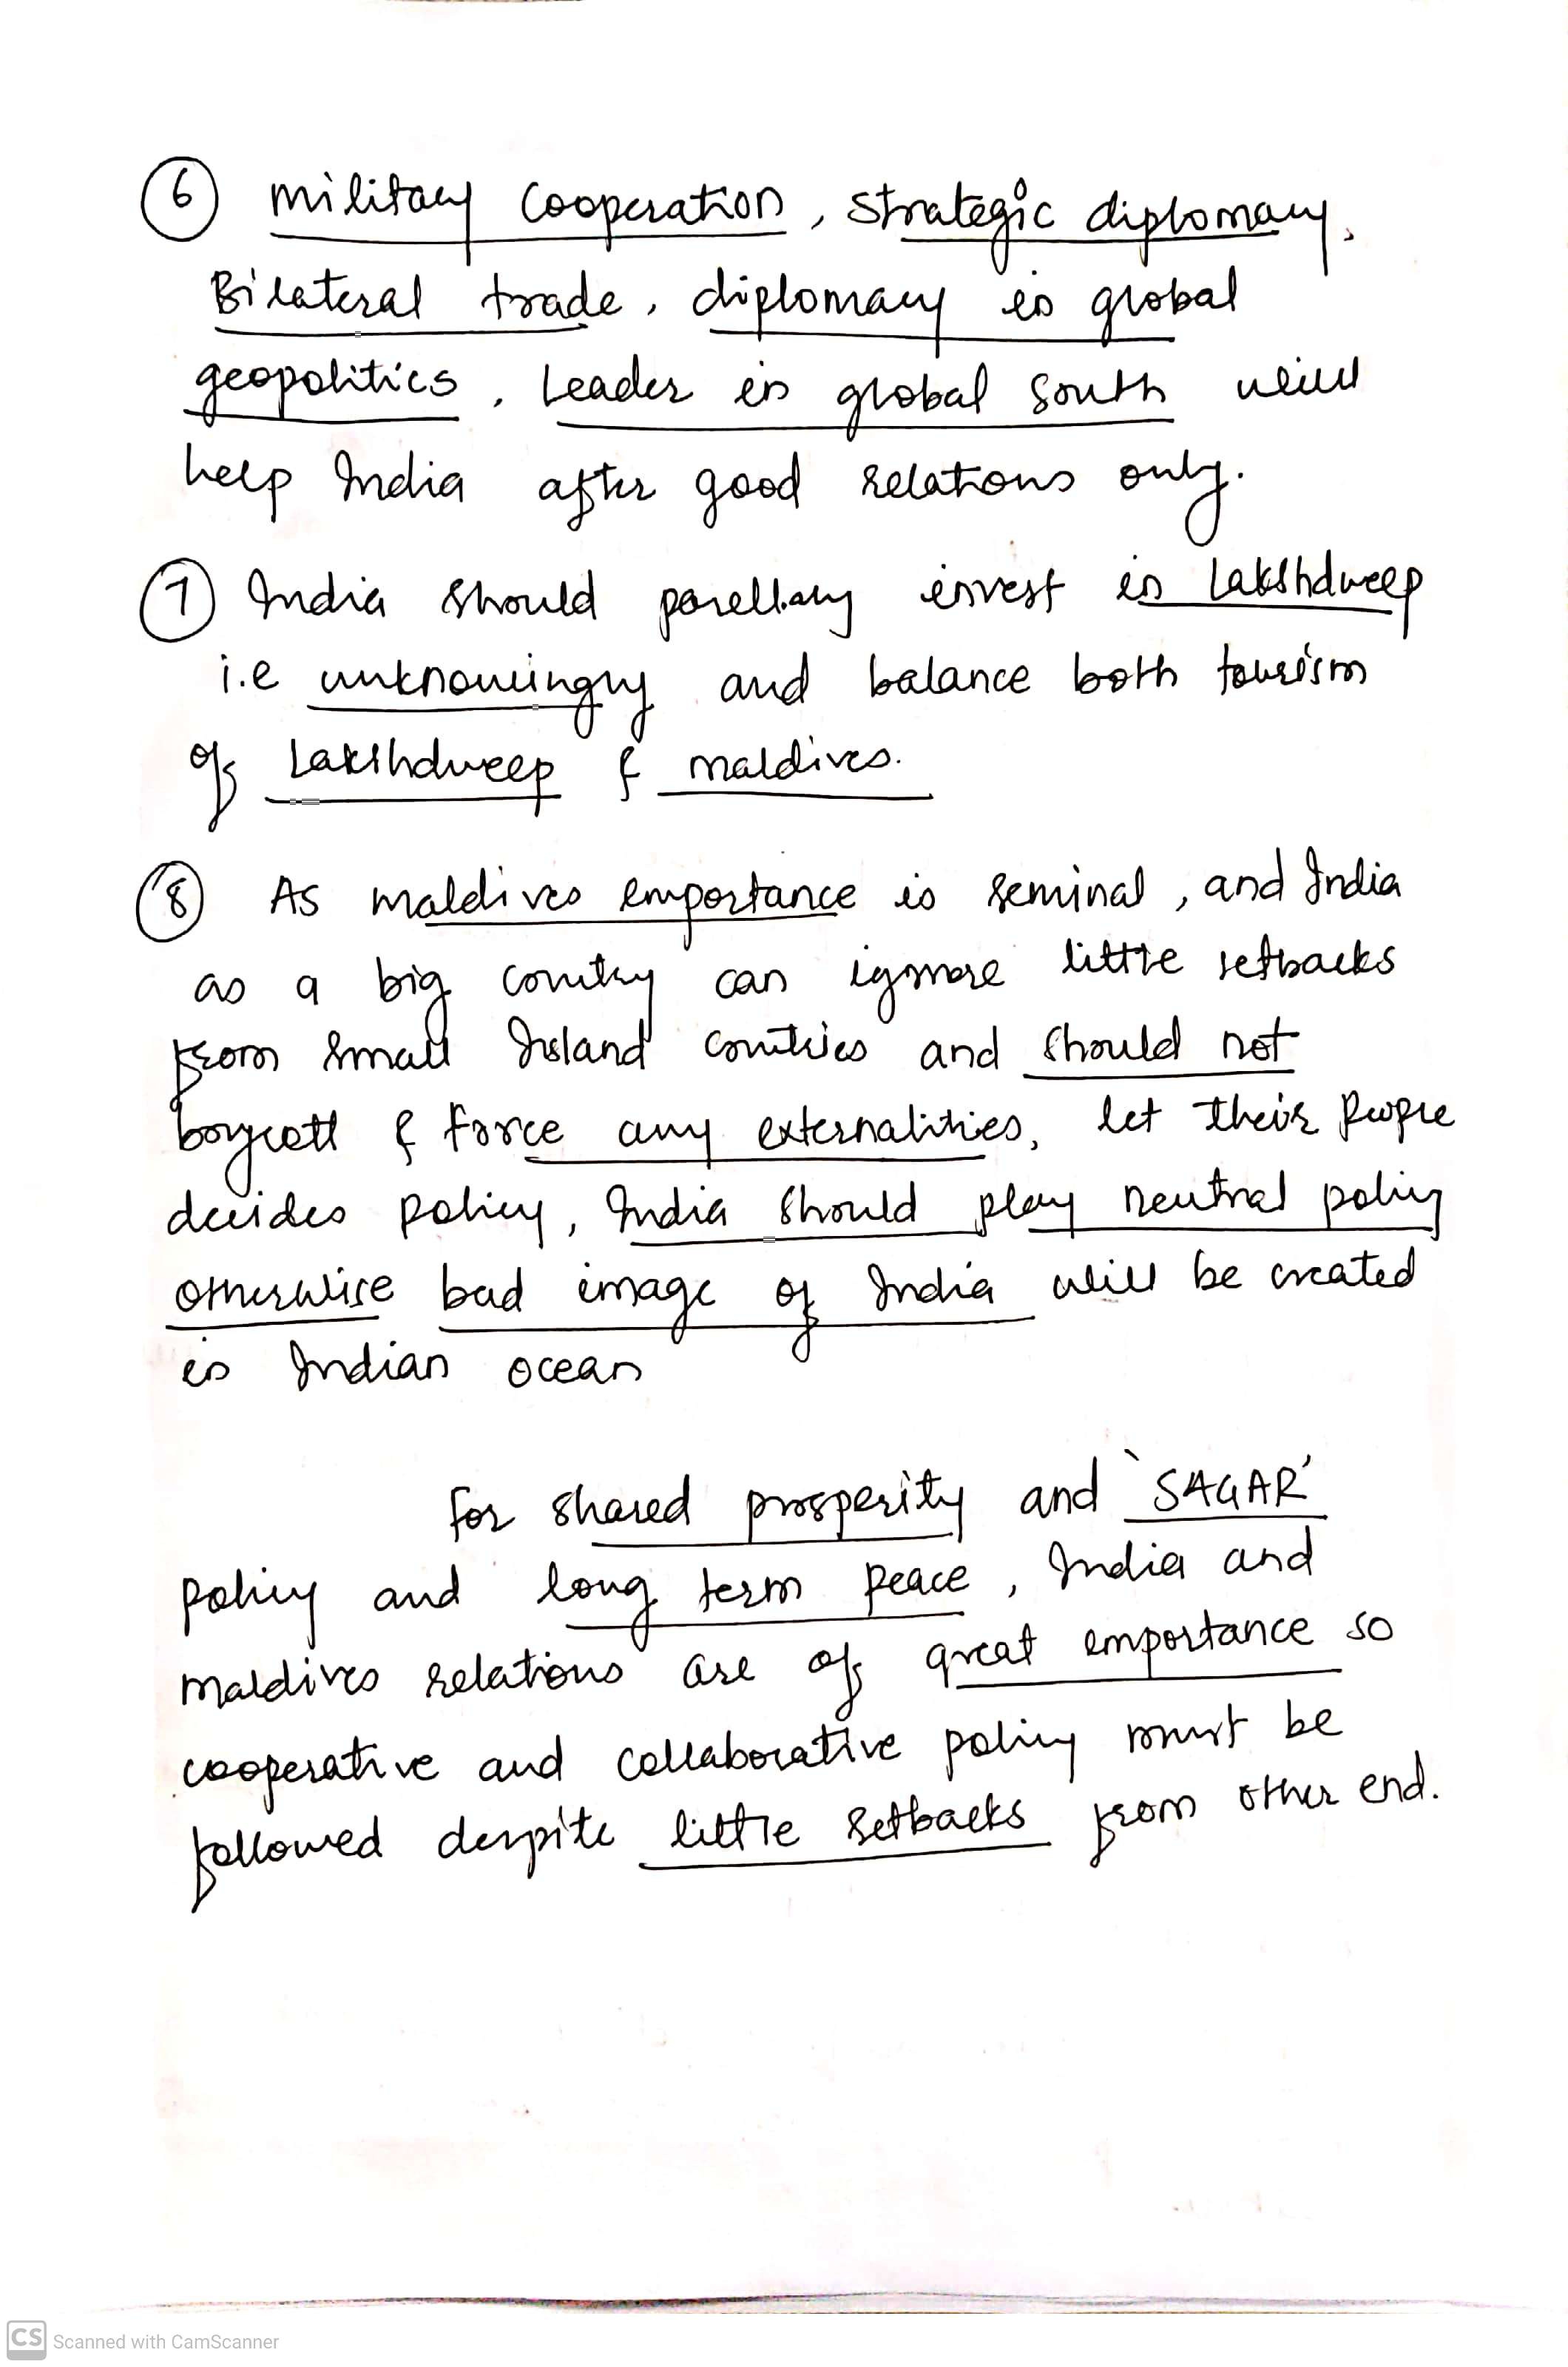 ⑥ military cooperation, strategic diplomacy,
Bilateral trade, diplomacy in global
geopolitics, Leader in global south will
help India after good relations only.
⑦ India should parellaly invest in Lakshdweep
i.e unknowingly and balance both tourism
of Lakshdweep & maldives.
⑧ As maldives importance is seminal, and India
as a big country can ignore little setbacks
from small Island countries and should not
boycott & force any externalities, let their people
decides policy, India should play neutral policy
otherwise bad image of India will be created
in Indian ocean
For shared prosperity and 'SAGAR'
policy and long term peace, India and
maldives relations are of great importance so
cooperative and collaborative policy must be
followed despite little setbacks from other end.
CS Scanned with CamScanner